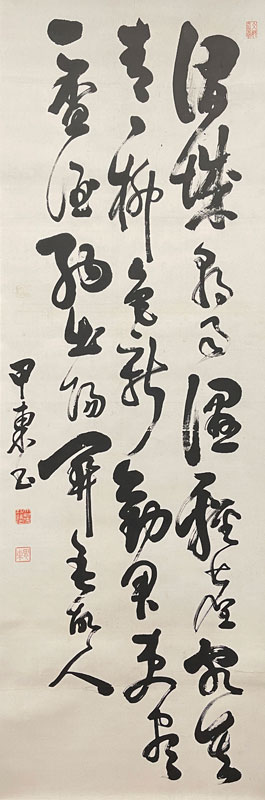 渭城朝雨浥輕塵客舍
青々柳色新勸君更盡
一盃酒西出陽關無故人
甲東書